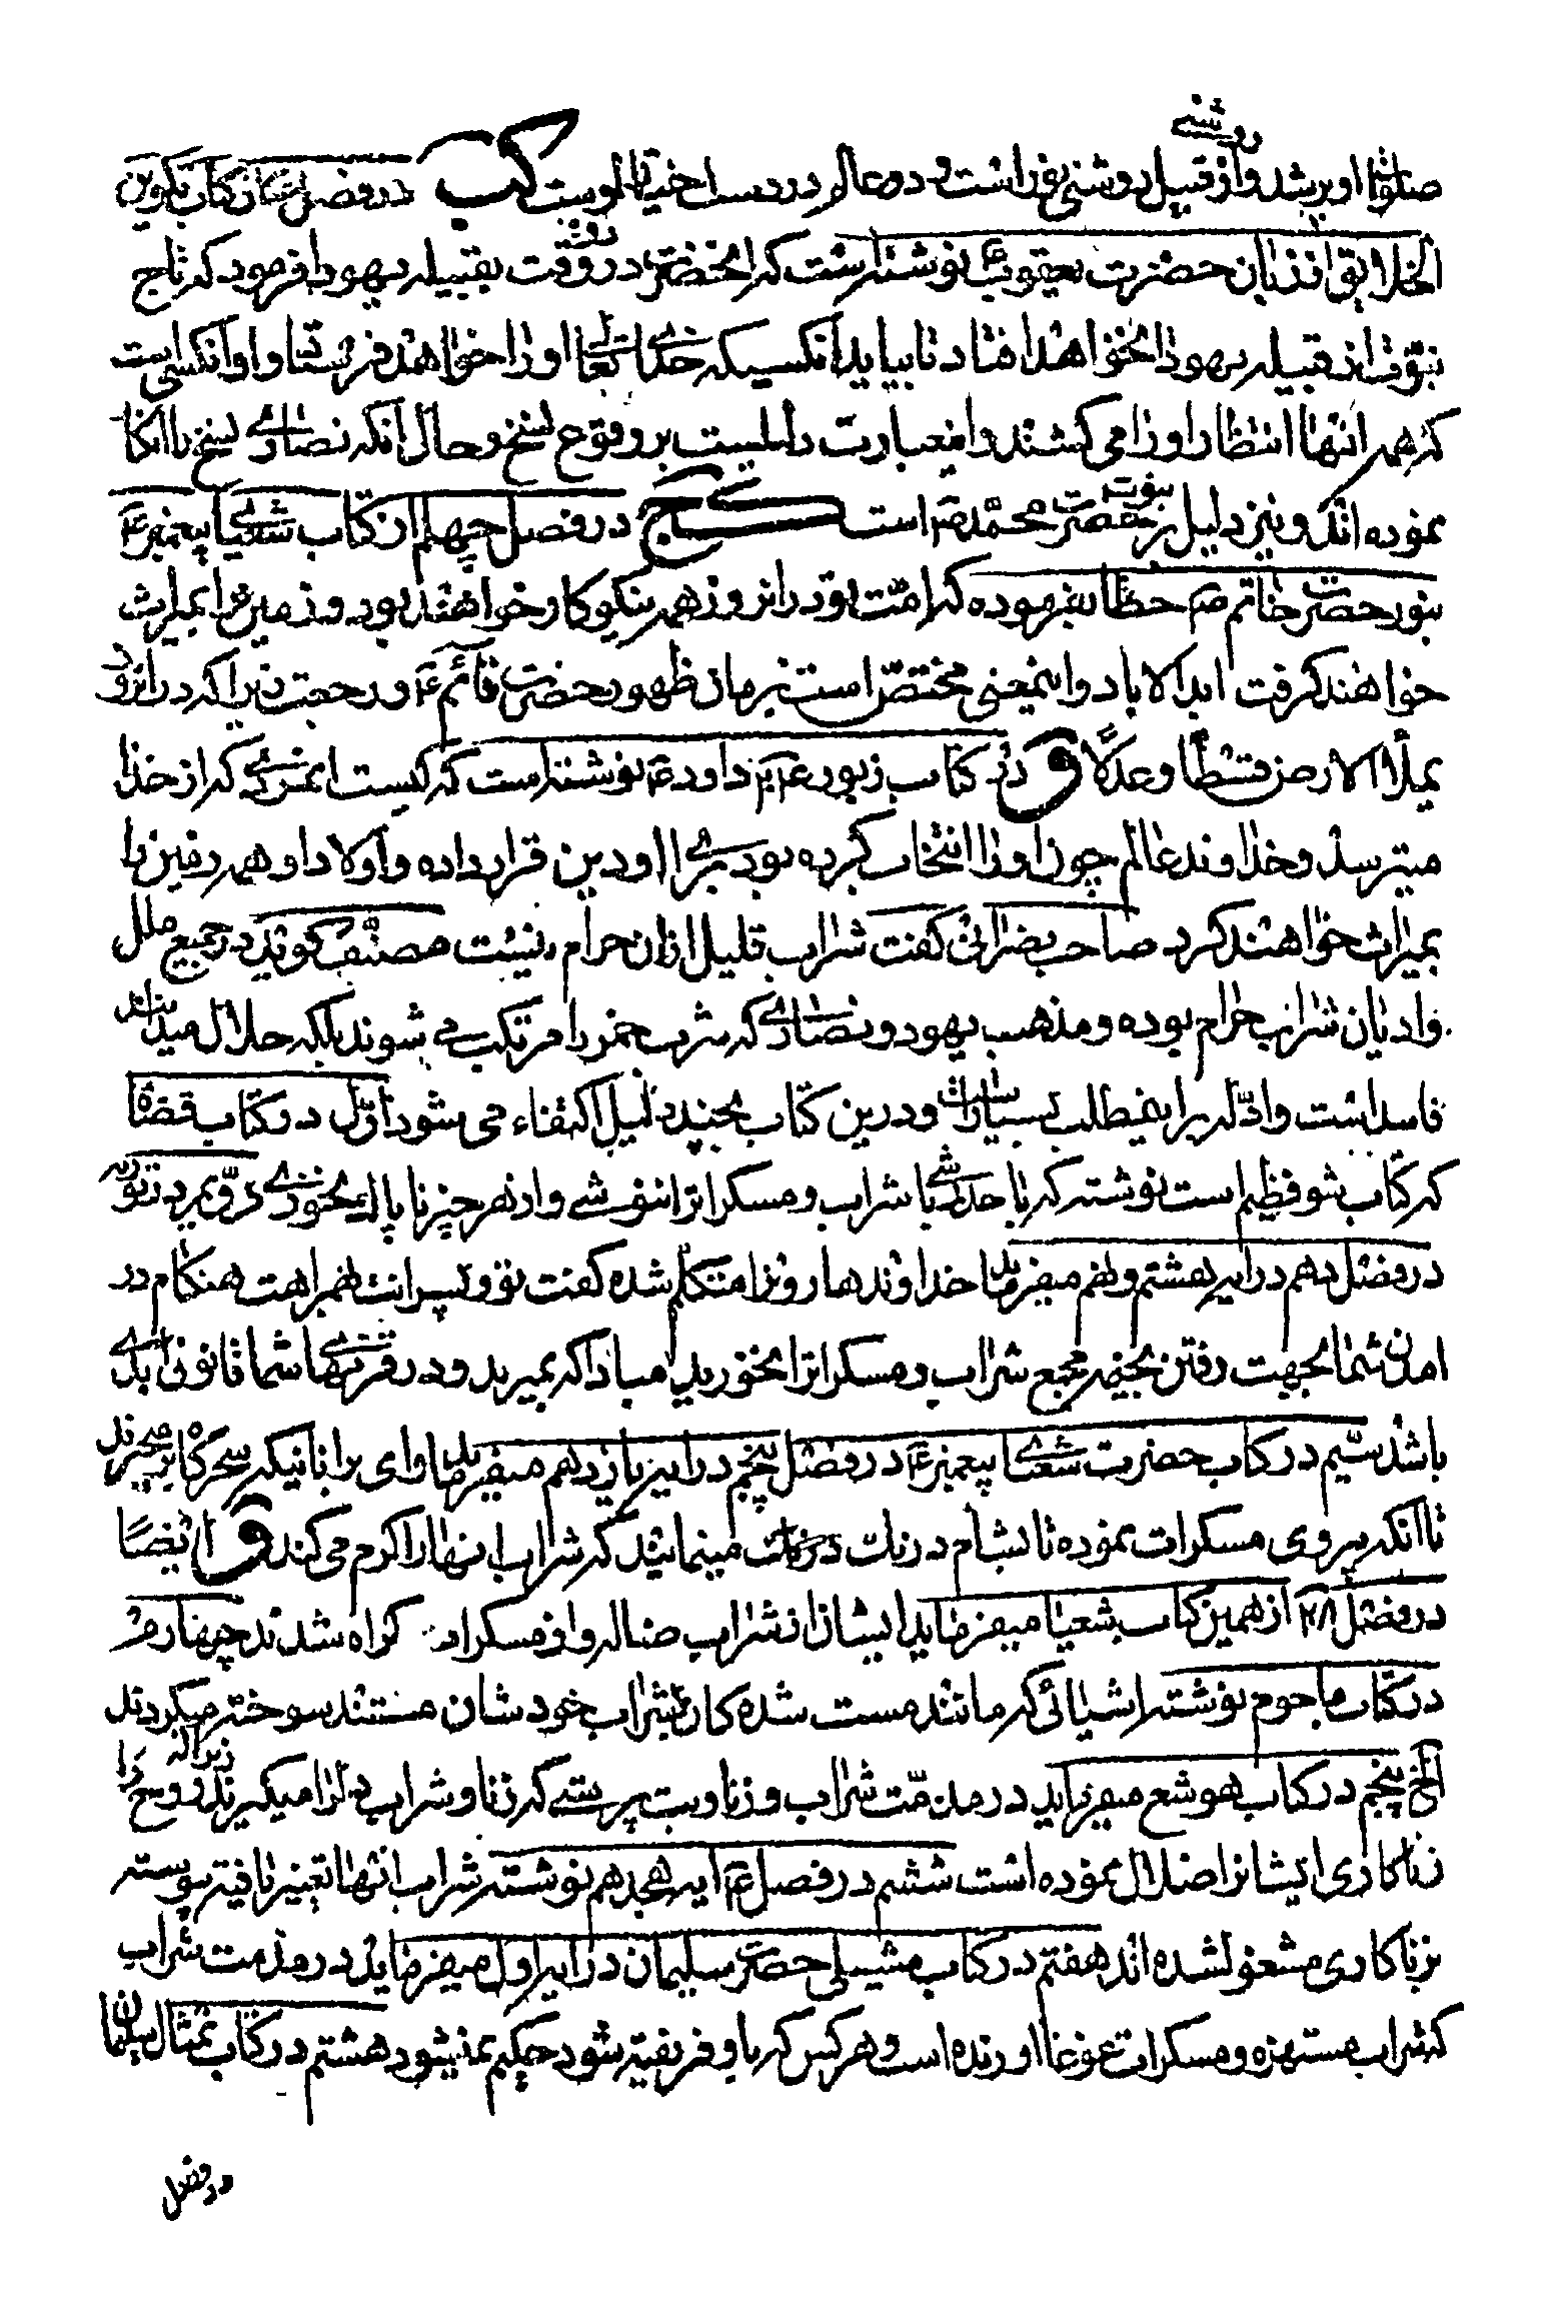 روشنی
صلواتها او بر شد و از قبیل روشنی نور است و دو عالم در دست اختیار اوست کب در فصل از کتاب تکوین
الخلایق از زبان حضرت یعقوب ع نوشته است که آنحضرت در وقت بقبیله یهودا فرمود که تاج
نبوت از قبیله یهودا نخواهد افتاد تا بیاید آنکسیکه خدای تعالی او را خواهد فرستاد و او آنکسی است
که همه انتها انتظار او را می کشند و اینعبارت دلیلست بر وقوع نسخ و حال آنکه نصاری نسخ را انکار
نموده اند و نیز دلیل بر نبوت حضرت محمد ص است کج در فصل چهلم از کتاب شعیا پیغمبر ع
بنور حضرت خاتم ص خطاب نموده که امت تو در انروز همه نیکوکار خواهند بود و زمین را بمیراث
خواهند گرفت ابد الاباد و اینمعنی مختص است بزمان ظهور حضرت قائم ع و رجعت زیرا که در انروز
یملأ الارض قسطا و عدلا و در کتاب زبور ۲۴ داود ع نوشته است که کیست انمردی که از خدا
میترسد و خداوند عالم چون او را انتخاب کرده بود برای او دین قرار داده و اولاد او همه زمین را
بمیراث خواهند کرد صاحب نصرانی گفت شراب قلیل از ان حرام نیست مصنف گوید در جمیع ملل
و ادیان شراب حرام بوده و مذهب یهود و نصاری که شرب خمر را مرتکب می شوند بلکه حلال میدانند
فاسد است و ادله بر اینمطلب بسیار است و درین کتاب بچند دلیل اکتفاء می شود اول در کتاب قضاة
که کتاب شوفطیم است نوشته که با حذر باش یا شراب و مسکرات ننوشی و از هر چیز ناپاک نخوری دویم در توریه
در فصل دهم در ایه هشتم و نهم میفرماید خداوند هارونرا متکلم شده گفت تو و پسرانت همراهت هنگام در
امدن شما بجهت رفتن بخیمه مجمع شراب و مسکراترا نخورید مبادا که بمیرید و در قرنهای شما قانون ابدی
باشد سیم در کتاب حضرت شعیا پیغمبر ع در فصل پنجم در ایه یازدهم میفرماید وای بر انانیکه سحرگاه بر میخیزند
تا انکه پیروی مسکرات نموده تا بشام درنگ مینمایند که شراب انها را گرم می کند و ایضا
در فصل ۲۸ از همین کتاب شعیا میفرماید ایشان از شراب ضاله و از مسکرات گمراه شدند چهارم
در کتاب ماحوم نوشته اشیائی که مانند مست شده کان بشراب خود شان مستند سوخته میکردند
الخ پنجم در کتاب هوشع میفرماید در مذمت شراب و زنا و بت پرستی که زنا و شراب دلرا میگیرند زیرا که روح را
زناکاری ایشانرا ضلال نموده است ششم در فصل ۴ ایه هجدهم نوشته شراب انها تغییر یافته پیوسته
بزناکاری مشغول شده اند هفتم در کتاب مشیلی حضرت سلیمان در ایه اول میفرماید در مذمت شراب
که شراب مستهزه و مسکرات غوغا اورنده است و هر کس که باو فریفته شود حکیم نمیشود هشتم در کتاب تمثال سلیمان
در فصل